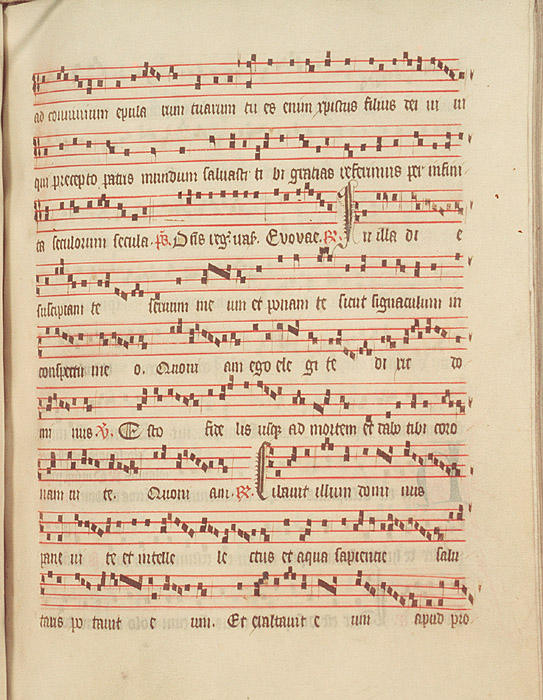 ad convivium epula rum tuarum tu es enim xpictus filius dei ui ui
qui precepto patris mundum saluasti ti bi gratias referimus per infini
ta seculorum secula. ps. Dns reg. uat. Evovae. R. In illa di e
suscipiam te servum me um et ponam te sicut signaculum in
conspectu me o. Quoni am ego ele gi te di xit do
mi nus V. Esto fide lis usqz ad mortem et dabo tibi coro
nam ui te. Quoni am. R. Cibauit illum domi nus
pane ui te et intelle le ctus et aqua sapiencie salu
taris po tauit e um. Et exaltauit e um apud pro